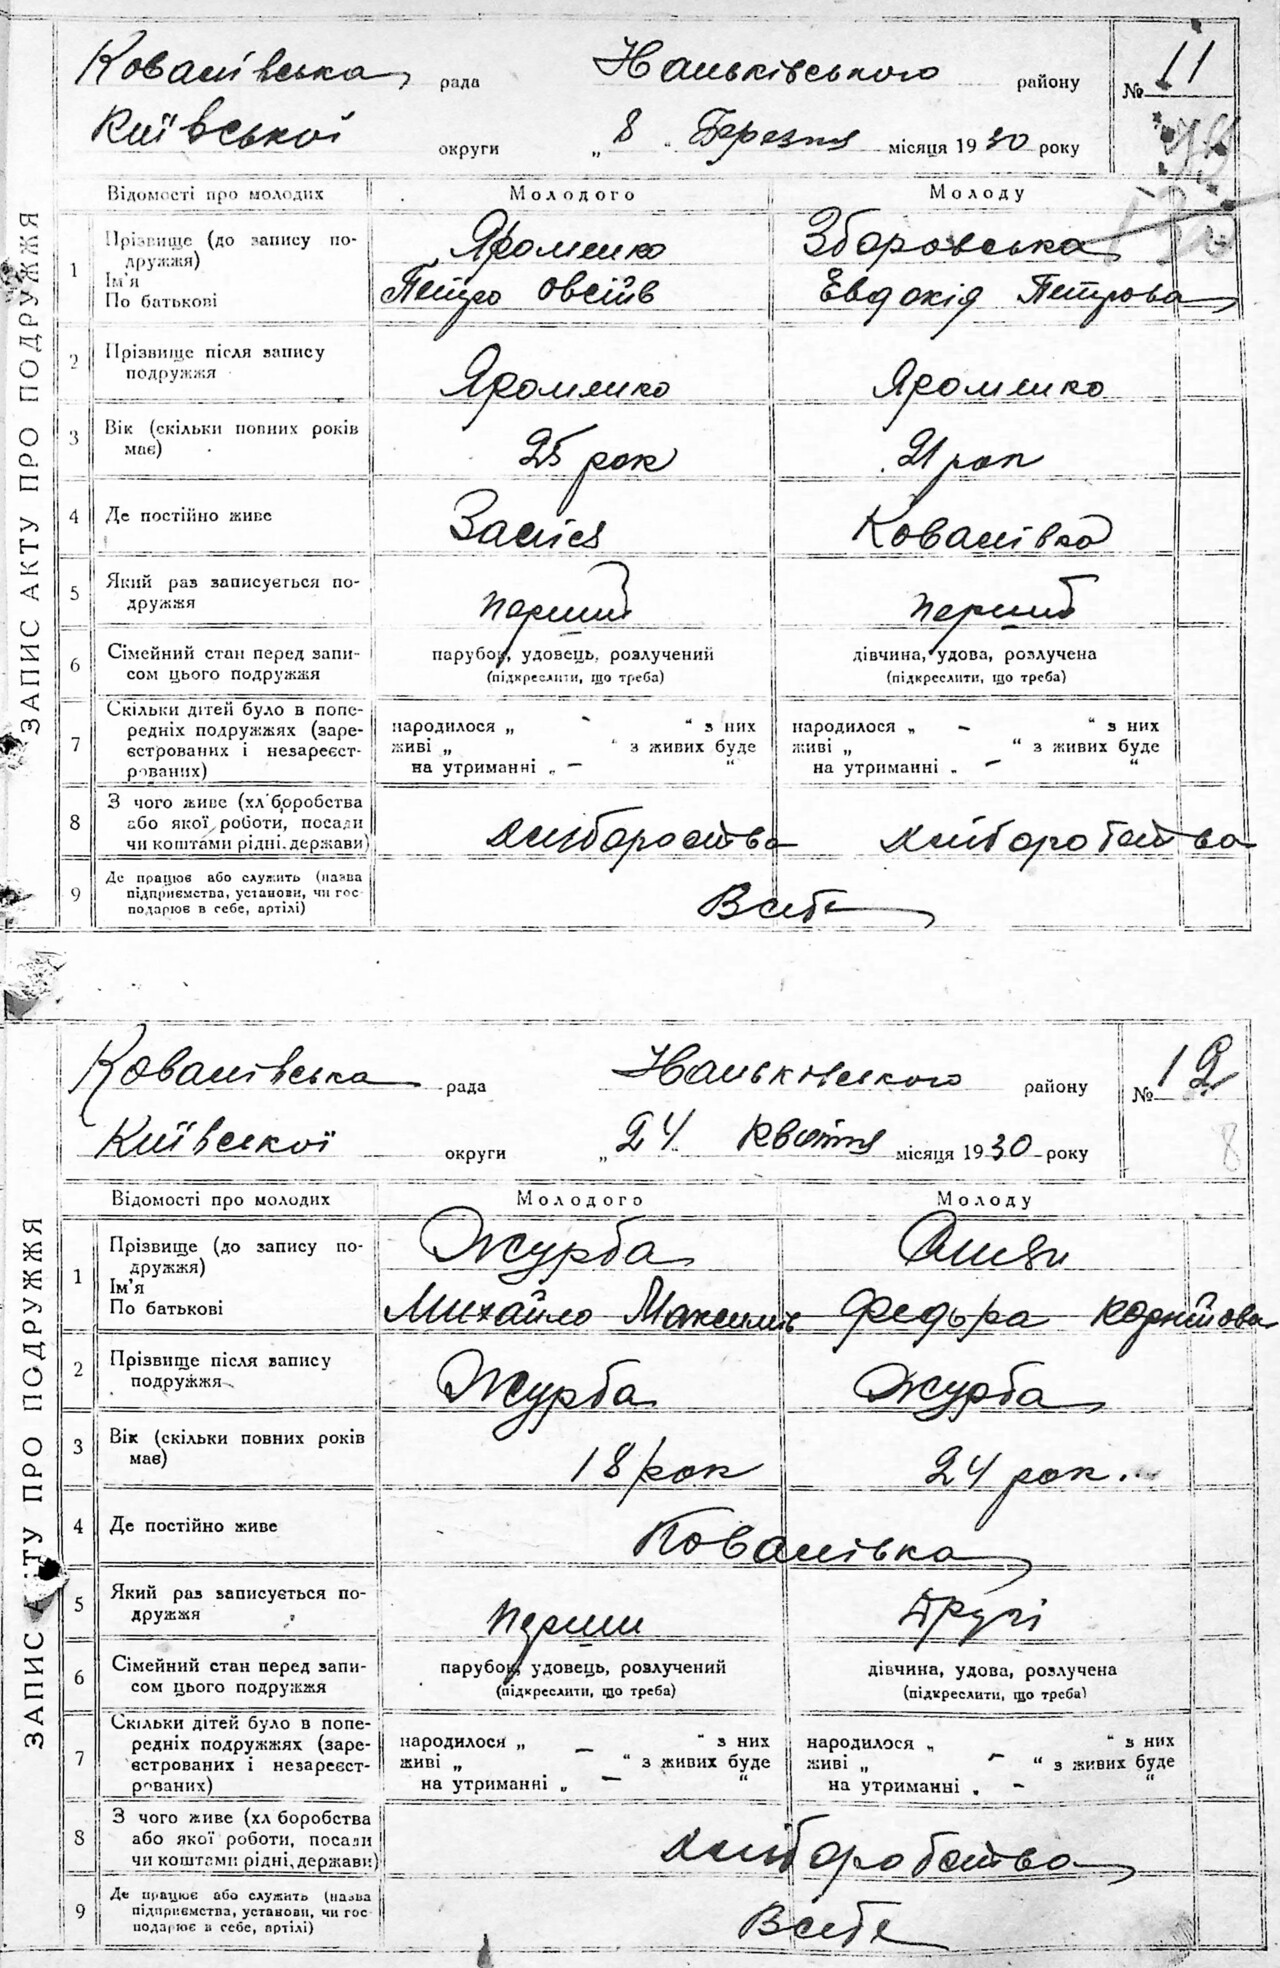 Ковалівська рада Наньківського району № 11
Київської округи „ 8 „ Березня місяця 1930 року
ЗАПИС АКТУ ПРО ПОДРУЖЖЯ
Відомості про молодих Молодого Молоду
1 Прізвище (до запису по-
дружжя) Яроменко Зборовська
Ім'я
По батькові Петро Овсіїв Евдокія Петрова
2 Прізвище після запису
подружжя Яроменко Яроменко
3 Вік (скільки повних років
має) 25 рок 21 рок
4 Де постійно живе Ковалівка
5 Який раз записується по-
дружжя перший перший
6 Сімейний стан перед запи-
сом цього подружжя
парубок, удовець, розлучений дівчина, удова, розлучена
(підкреслити, що треба) (підкреслити, що треба)
7 Скільки дітей було в попе-
редніх подружжях (заре-
єстрованих і незареєст-
рованих)
народилося „ - “ з них народилося „ - “ з них
живі „ “ з живих буде живі „ “ з живих буде
на утриманні „ - “ на утриманні „ - “
8 З чого живе (хліборобства
або якої роботи, посади
чи коштами рідні, держави) хліборобства хліборобства
9 Де працює або служить (назва
підприємства, установи, чи гос-
подарює в себе, артілі) В себе
Ковалівська рада Наньківського району № 12
8
Київскої округи „ 24 „ Квітня місяця 1930 року
ЗАПИС АКТУ ПРО ПОДРУЖЖЯ
Відомості про молодих Молодого Молоду
1 Прізвище (до запису по-
дружжя) Журба
Ім'я
По батькові Михайло Максимів Федьра Корнійова
2 Прізвище після запису
подружжя Журба Журба
3 Вік (скільки повних років
має) 18 рок 24 рок.
4 Де постійно живе Ковалівка
5 Який раз записується по-
дружжя перши Другі
6 Сімейний стан перед запи-
сом цього подружжя
парубок, удовець, розлучений дівчина, удова, розлучена
(підкреслити, що треба) (підкреслити, що треба)
7 Скільки дітей було в попе-
редніх подружжях (заре-
єстрованих і незареєст-
рованих)
народилося „ - “ з них народилося „ “ з них
живі „ “ з живих буде живі „ - “ з живих буде
на утриманні „ - “ на утриманні „ - “
8 З чого живе (хліборобства
або якої роботи, посади
чи коштами рідні, держави) хліборобства
9 Де працює або служить (назва
підприємства, установи, чи гос-
подарює в себе, артілі) В себе